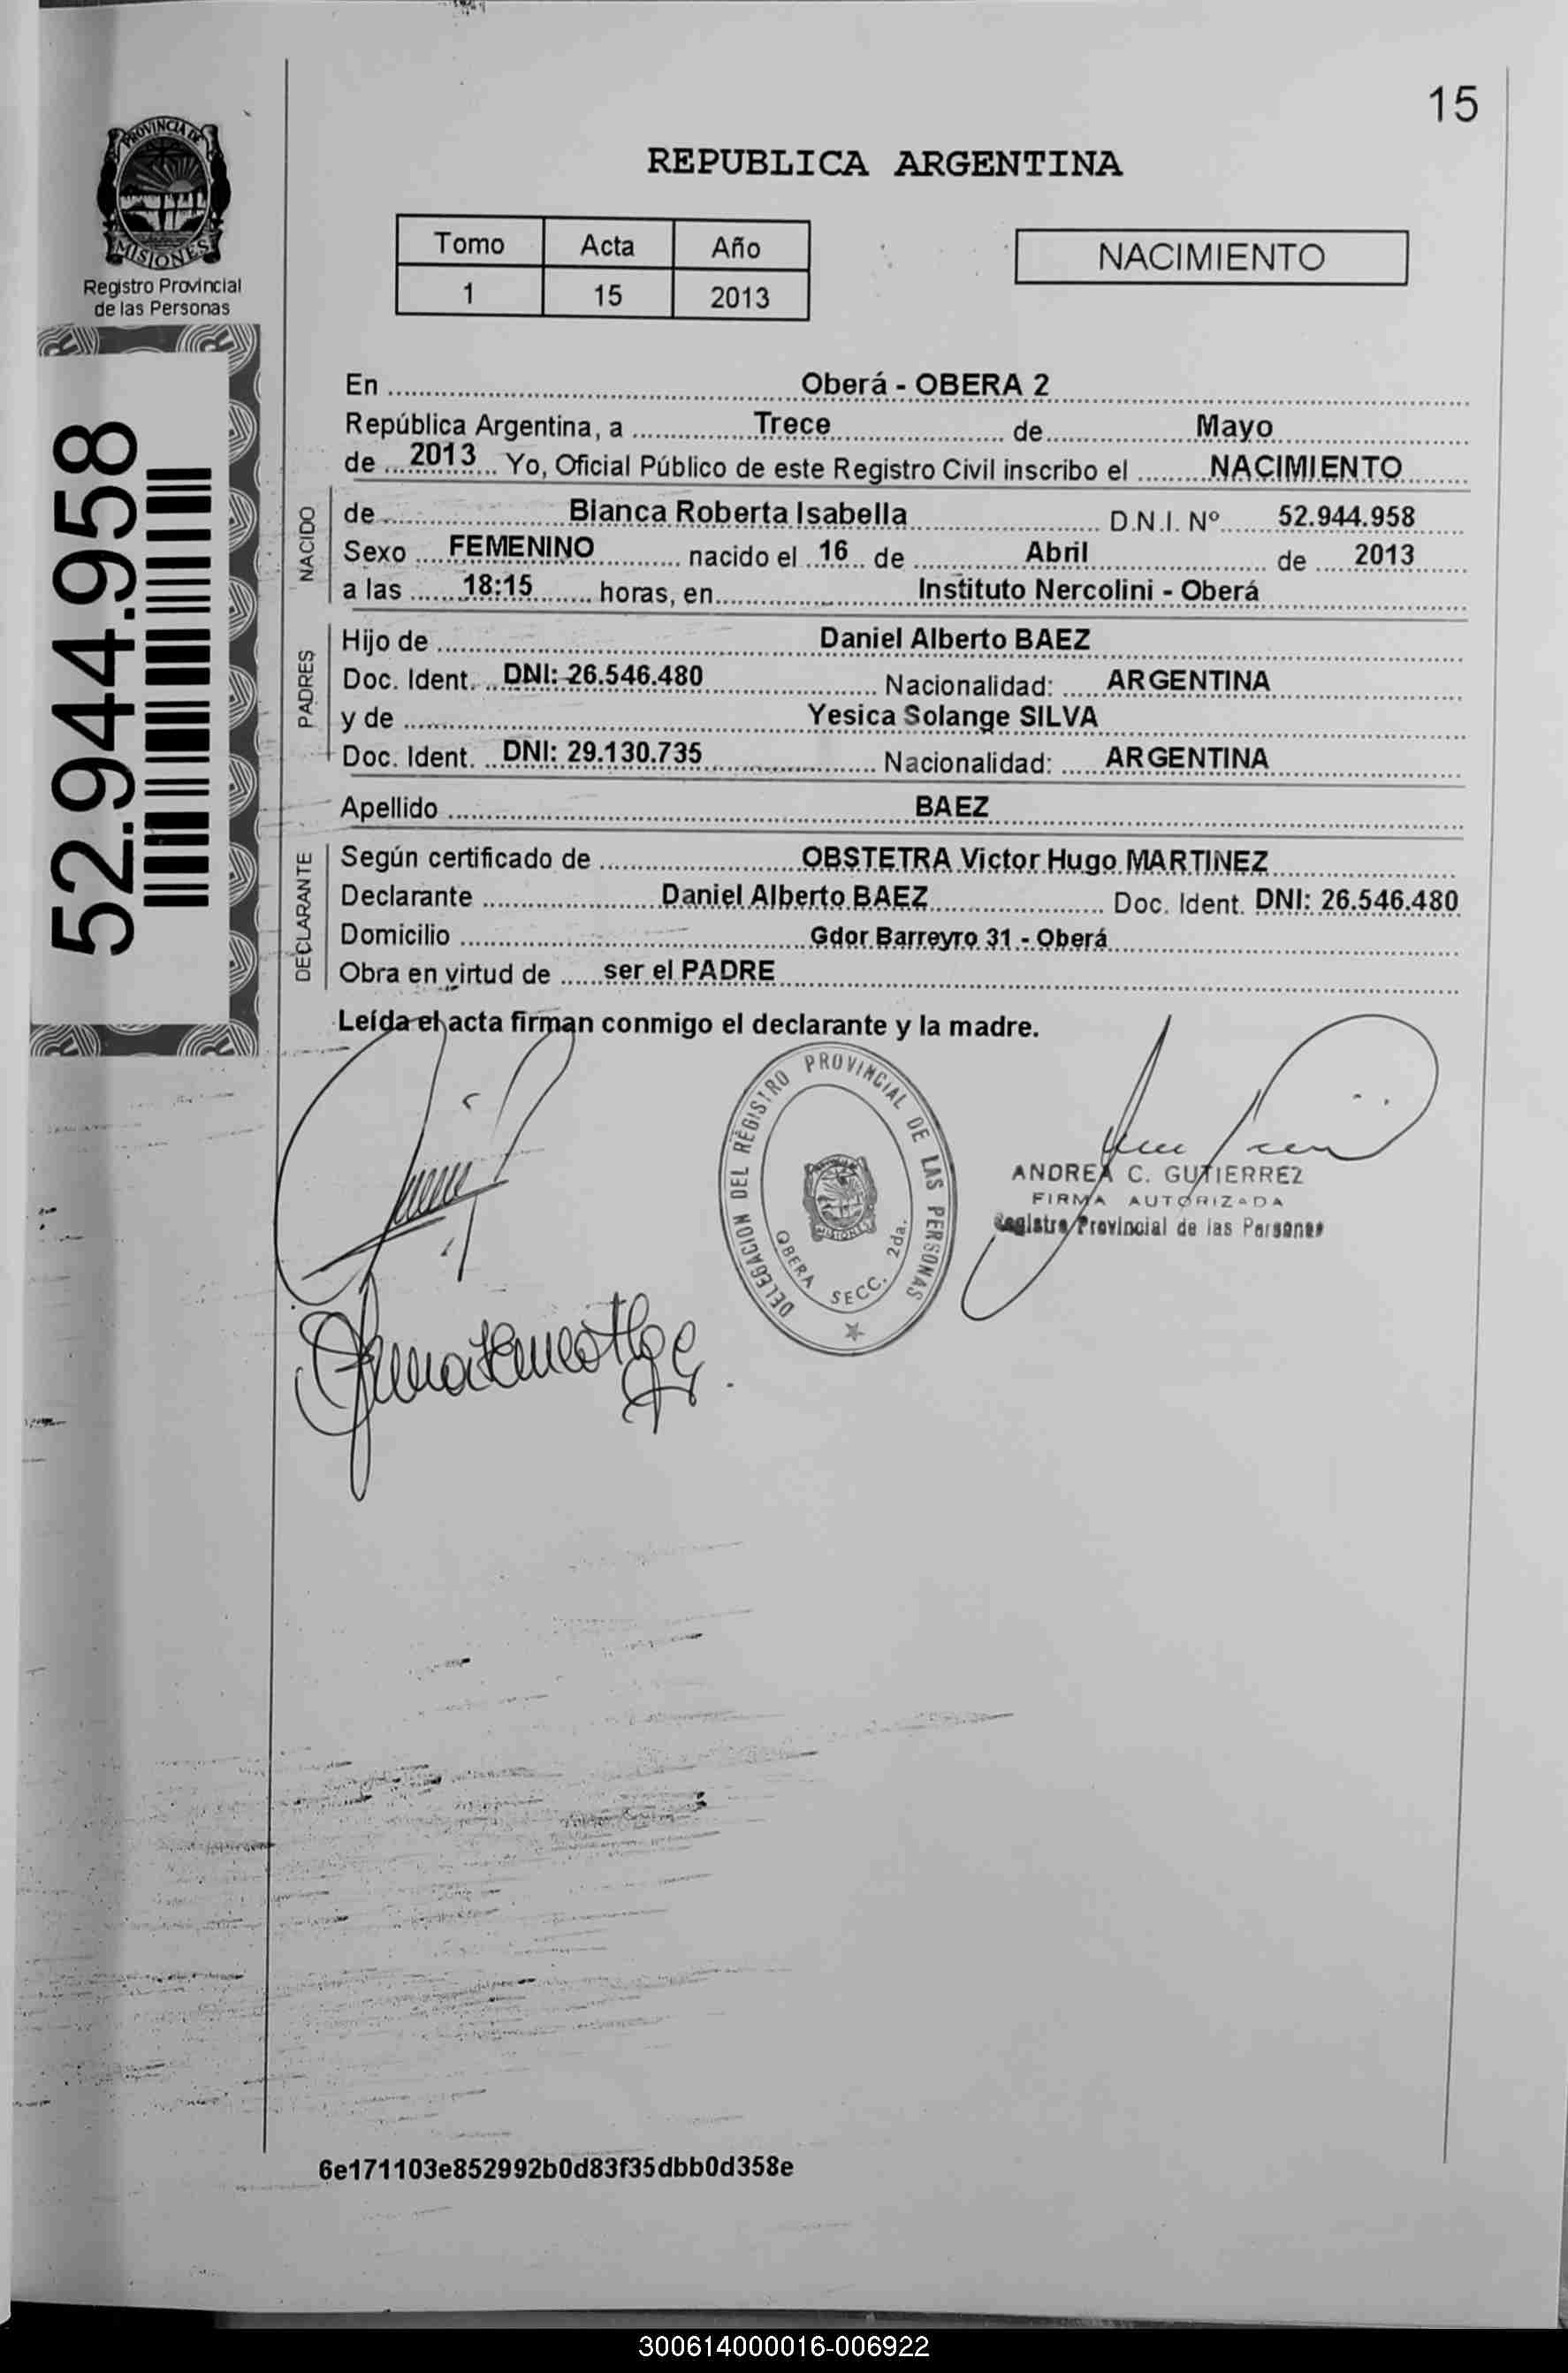 15
PROVINCIA DE
MISIONES
Registro Provincial
de las Personas
52.944.958
REPUBLICA ARGENTINA
Tomo Acta Año
1 15 2013
NACIMIENTO
En Oberá - OBERA 2
República Argentina, a Trece de Mayo
de 2013 Yo, Oficial Público de este Registro Civil inscribo el NACIMIENTO
NACIDO
de Bianca Roberta Isabella D.N.I. Nº 52.944.958
Sexo FEMENINO nacido el 16 de Abril de 2013
a las 18:15 horas, en Instituto Nercolini - Oberá
PADRES
Hijo de Daniel Alberto BAEZ
Doc. Ident. DNI: 26.546.480 Nacionalidad: ARGENTINA
y de Yesica Solange SILVA
Doc. Ident. DNI: 29.130.735 Nacionalidad: ARGENTINA
Apellido BAEZ
DECLARANTE
Según certificado de OBSTETRA Victor Hugo MARTINEZ
Declarante Daniel Alberto BAEZ Doc. Ident. DNI: 26.546.480
Domicilio Gdor Barreyro 31 - Oberá
Obra en virtud de ser el PADRE
Leída el acta firman conmigo el declarante y la madre.
DELEGACION DEL REGISTRO PROVINCIAL DE LAS PERSONAS
MISIONES
OBERA SECC. 2da.
ANDREA C. GUTIERREZ
FIRMA AUTORIZADA
Registro Provincial de las Personas
6e171103e852992b0d83f35dbb0d358e
300614000016-006922